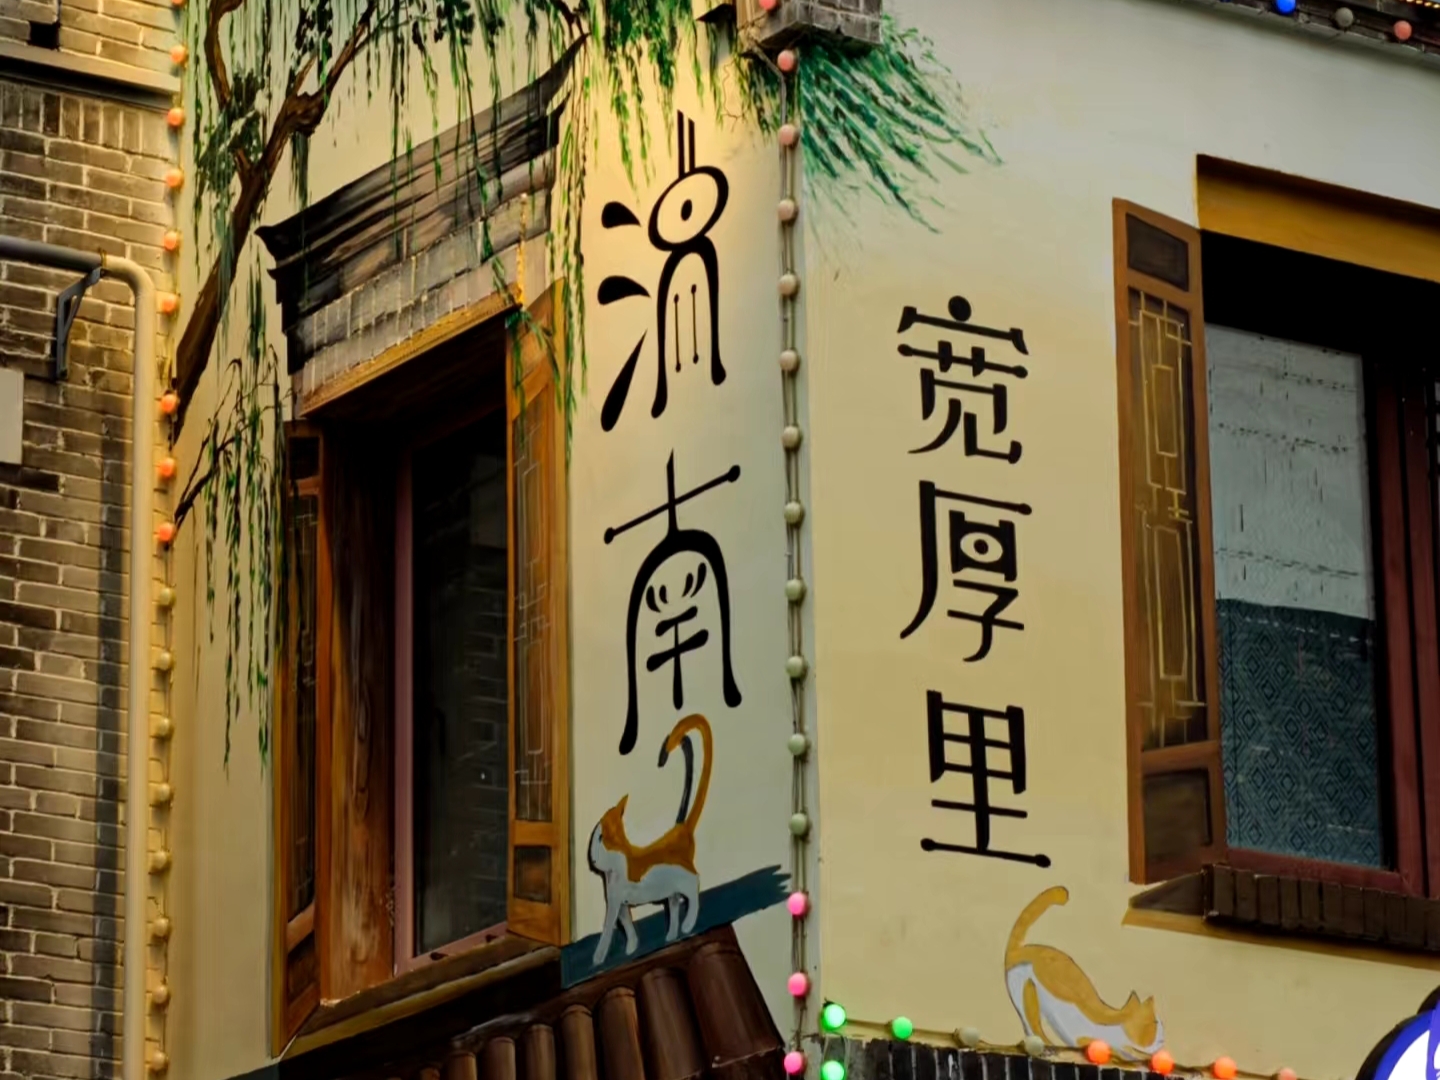 济南
宽厚里